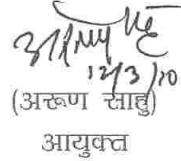 12/3/10
(अरूण साहु)
आयुक्त